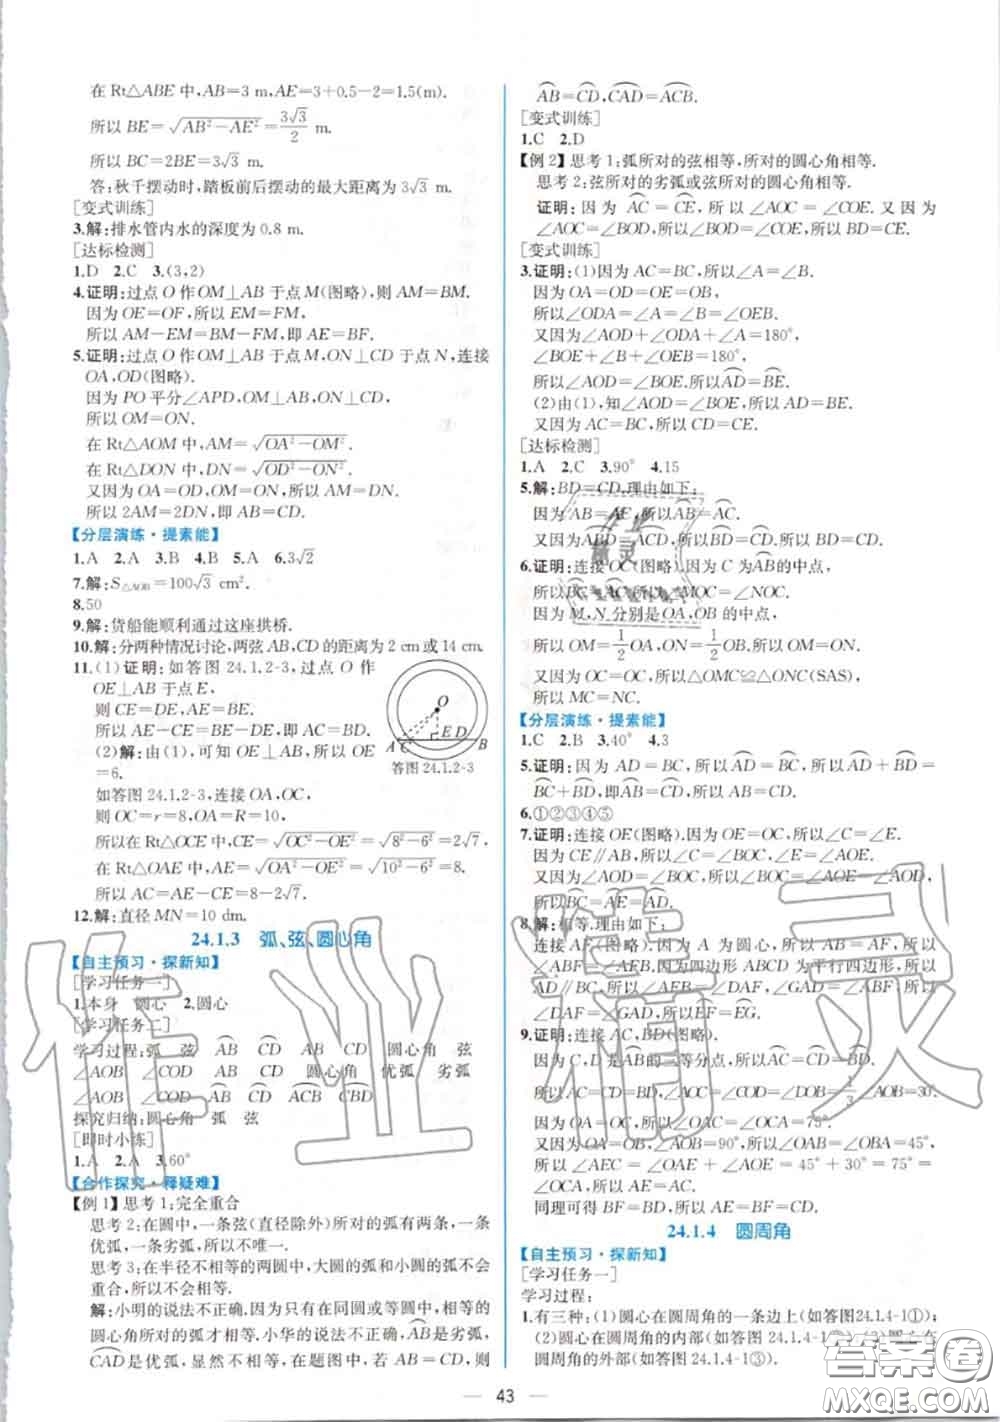 在 Rt△ABE 中,AB=3 m,AE=3+0.5-2=1.5(m).
所以 BE=√(AB²-AE²)=3√3/2 m.
所以 BC=2BE=3√3 m.
答:秋千摆动时,踏板前后摆动的最大距离为 3√3 m.
[变式训练]
3.解:排水管内水的深度为 0.8 m.
[达标检测]
1.D 2.C 3.(3,2)
4.证明:过点 O 作 OM⊥AB 于点 M(图略),则 AM=BM.
因为 OE=OF,所以 EM=FM,
所以 AM-EM=BM-FM,即 AE=BF.
5.证明:过点 O 作 OM⊥AB 于点 M,ON⊥CD 于点 N,连接
OA,OD(图略).
因为 PO 平分∠APD,OM⊥AB,ON⊥CD,
所以 OM=ON.
在 Rt△AOM 中,AM=√(OA²-OM²).
在 Rt△DON 中,DN=√(OD²-ON²).
又因为 OA=OD,OM=ON,所以 AM=DN.
所以 2AM=2DN,即 AB=CD.
【分层演练·提素能】
1.A 2.A 3.B 4.B 5.A 6.3√2
7.解:S△AOB=100√3 cm².
8.50
9.解:货船能顺利通过这座拱桥.
10.解:分两种情况讨论,两弦 AB,CD 的距离为 2 cm 或 14 cm.
11.(1)证明:如答图 24.1.2-3,过点 O 作
OE⊥AB 于点 E,
则 CE=DE,AE=BE.
所以 AE-CE=BE-DE,即 AC=BD.
(2)解:由(1),可知 OE⊥AB,OE
=6.
如答图 24.1.2-3,连接 OA,OC,
则 OC=r=8,OA=R=10,
O
A C E D B
答图 24.1.2-3
所以在 Rt△OCE 中,CE=√(OC²-OE²)=√(8²-6²)=2√7.
在 Rt△OAE 中,AE=√(OA²-OE²)=√(10²-6²)=8,
所以 AC=AE-CE=8-2√7.
12.解:直径 MN=10 dm.
24.1.3 弧、弦、圆心角
【自主预习·探新知】
[学习任务一]
1.本身 圆心 2.圆心
[学习任务二]
学习过程:弧 弦 AB CD AB CD 圆心角 弦
∠AOB ∠COD AB CD 圆心角 优弧 劣弧
∠AOB ∠COD AB CD ACB CBD
探究归纳:圆心角 弧 弦
[即时小练]
1.A 2.A 3.60°
【合作探究·释疑难】
[例 1] 思考 1:完全重合
思考 2:在圆中,一条弦(直径除外)所对的弧有两条,一条
优弧,一条劣弧,所以不唯一.
思考 3:在半径不相等的两圆中,大圆的弧和小圆的弧不重
合,所以不会相等.
解:小明的说法不正确.因为只有在同圆或等圆中,相等的
圆心角所对的弧才相等.小华的说法不正确.AB是劣弧,
CAD是优弧,显然不相等,在题图中,若 AB=CD,则
AB=CD,CAD=ACB.
[变式训练]
1.C 2.D
[例 2] 思考 1:弧所对的弦相等,所对的圆心角相等.
思考 2:弦所对的劣弧或弦所对的圆心角相等.
证明:因为 AC=CE,所以∠AOC=∠COE.又因为
∠AOC=∠BOD,所以∠BOD=∠COE,所以 BD=CE.
[变式训练]
3.证明:(1)因为 AC=BC,所以∠A=∠B.
因为 OA=OD=OE=OB,
所以∠ODA=∠A=∠B=∠OEB.
又因为∠AOD+∠ODA+∠A=180°,
∠BOE+∠B+∠OEB=180°,
所以∠AOD=∠BOE.所以AD=BE.
(2)由(1),知∠AOD=∠BOE,所以 AD=BE.
又因为 AC=BC,所以 CD=CE.
[达标检测]
1.A 2.C 3.90° 4.15
5.解:BD=CD.理由如下:
因为 AB=AE,所以AB=AC.
又因为ABD=ACD,所以BD=CD.所以 BD=CD.
6.证明:连接 OC(图略).因为 C 为AB的中点,
所以AC=BC.所以∠MOC=∠NOC.
因为 M,N 分别是 OA,OB 的中点,
所以 OM=1/2 OA=1/2 OB=ON.
又因为 OC=OC,所以△OMC≌△ONC(SAS),
所以 MC=NC.
【分层演练·提素能】
1.C 2.B 3.40° 4.3
5.证明:因为 AD=BC,所以AD=BC,所以AD+BD=
BC+BD,即AB=CD,所以 AB=CD.
6.①②③④⑤
7.证明:连接 OE(图略).因为 OE=OC,所以∠C=∠E.
因为 CE∥AB,所以∠C=∠BOC,∠E=∠AOE.
又因为∠AOD=∠BOC,所以∠AOE=∠AOD,
所以AE=AD.
8.解:相等.理由如下:
连接 AF(图略).因为 A 为圆心,所以 AB=AF,所以
∠ABF=∠AFB.因为四边形 ABCD 为平行四边形,所以
AD∥BC,所以∠AFB=∠DAF,∠GAD=∠ABF,所以
∠DAF=∠GAD,所以EF=EG.
9.证明:连接 AC,BD(图略).
因为 C,D 是AB的三等分点,所以AC=CD=DB,
所以 AC=CD=BD,∠AOC=∠COD=∠DOB=1/3∠AOB=30°.
又因为 OA=OC,所以∠OAC=∠OCA=75°.
又因为 OA=OB,∠AOB=90°,所以∠OAB=∠OBA=45°,
所以∠AEC=∠OAE+∠AOE=45°+30°=75°=
∠OCA,所以 AE=AC.
同理可得 BF=BD,所以 AE=BF=CD.
24.1.4 圆周角
【自主预习·探新知】
[学习任务一]
学习过程:
1.有三种:(1)圆心在圆周角的一条边上(如答图24.1.4-1①);
(2)圆心在圆周角的内部(如答图 24.1.4-1②);(3)圆心在
圆周角的外部(如答图 24.1.4-1③).
43
作业精灵
答案圈
MXQE.COM